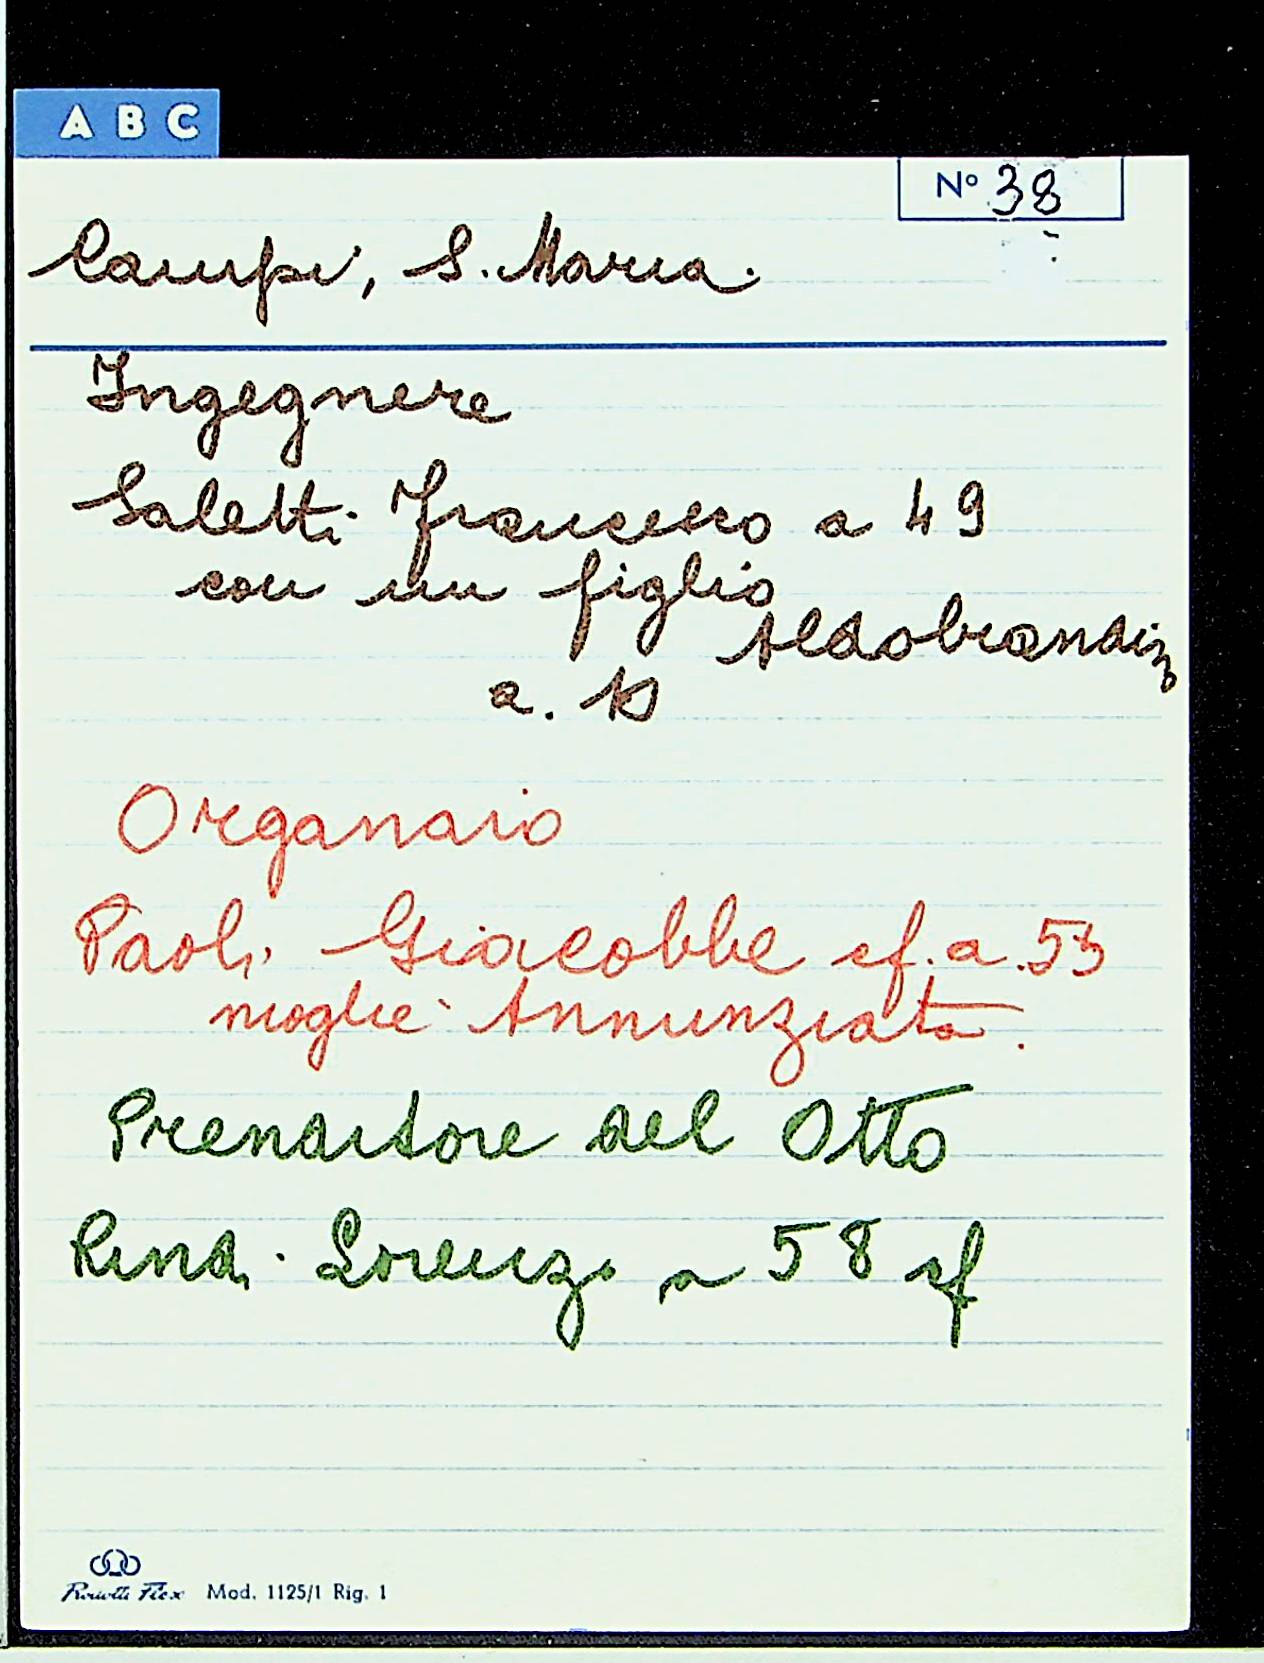 A B C
N° 38
Campi, S. Maria.
Ingegnere
Saletti Francesco a 49
con un figlio
Aldobrandin
a.
Organaio
Paoli Giacobbe cf. a. 53
moglie Annunziata.
Prenditore del Otto
Rindi Lorenzo a 58 cf
Mod. 1125/1 Rig. 1